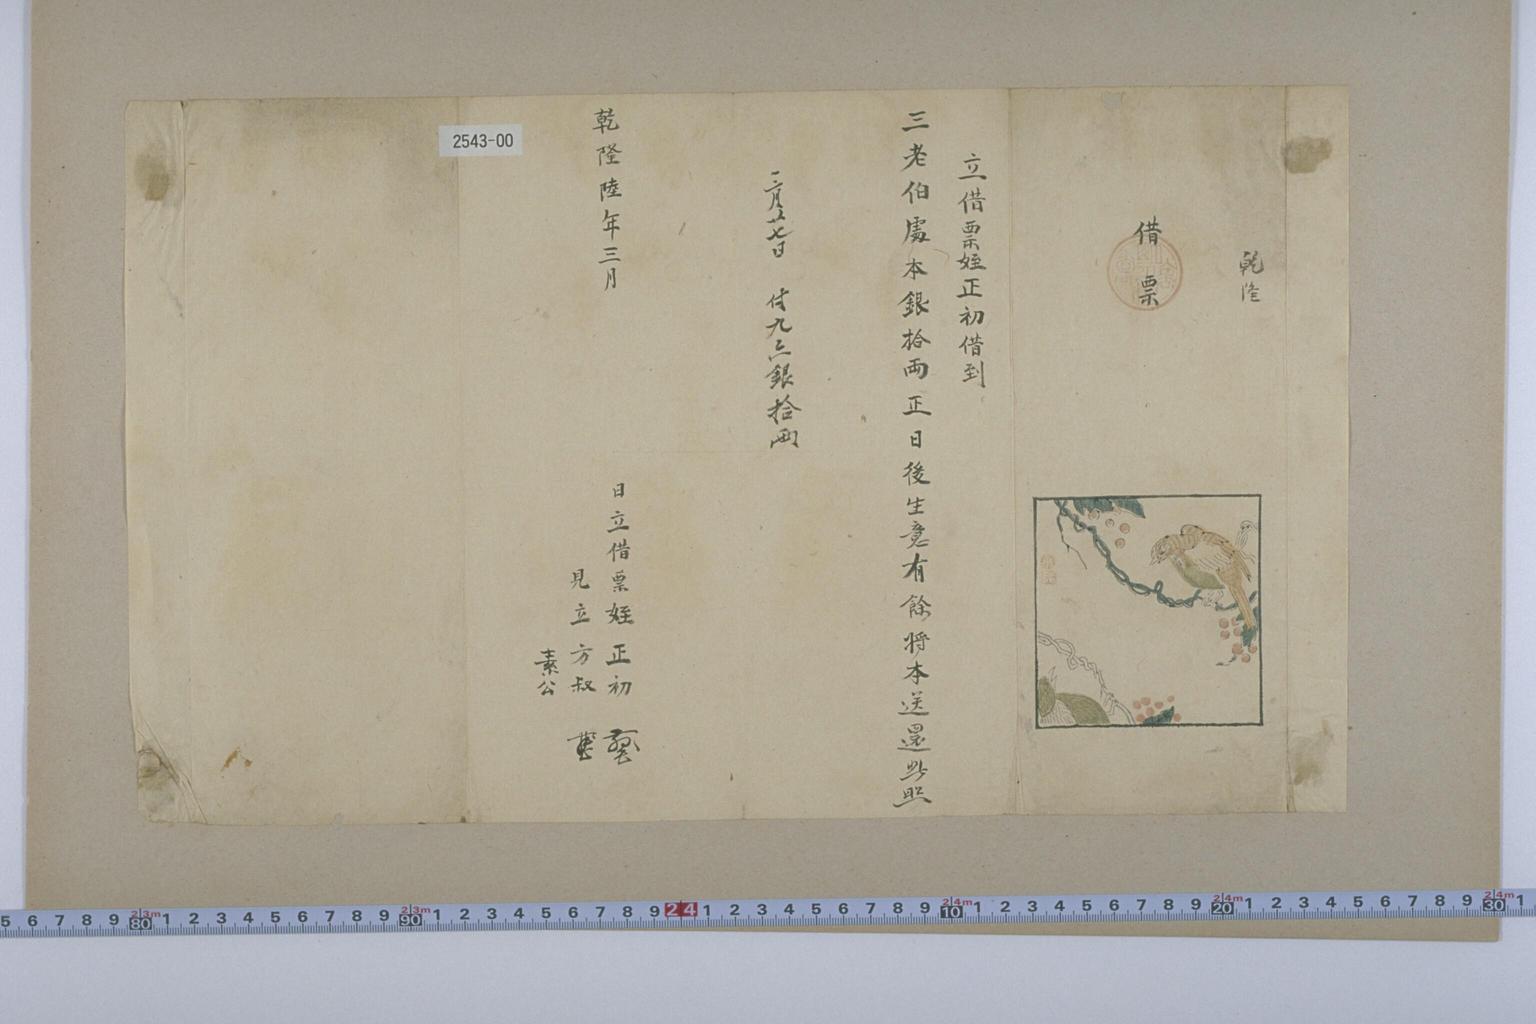 乾隆
借票
立借票姪正初借到
三老伯處本銀拾兩正日後生意有餘將本送還此照
三月廿七日 付九六銀拾兩
乾隆陸年三月 日立借票姪正初
見立方叔
素公
2543-00